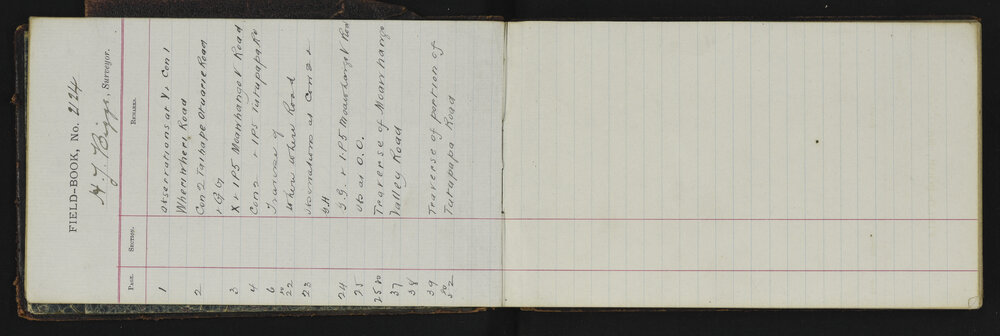 FIELD-BOOK, No. 2124
H. J. Biggs, Surveyor.
Page. Section. Remarks.
1 Observations at X, Con 1
Whenwhen Road
2 Con 2 Taihape Road
+ G G
3 X + 1P5 Moawhango V Road
4 Con 2 + 1P5 Turapapa Rd
6 Traverse of
to 22 Whenwhen Road
23 Observations at Con 2 +
G.H
24 G.G. + 1P5 Moawhango V Road
25 Obs at O.C.
25 to Traverse of Moawhango
37 Valley Road
38
39 Traverse of portion of
to 52 Turapapa Road